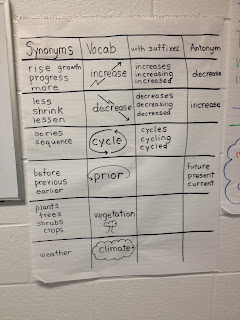 Synonyms Vocab with suffixes Antonym
rise growth
progress
more
increase
increases
increasing
increased
decrease
less
shrink
lessen
decrease
decreases
decreasing
decreased
increase
series
sequence
cycle
cycles
cycling
cycled
before
previous
earlier
prior
future
present
current
plants
trees
shrubs
crops
vegetation
weather
climate